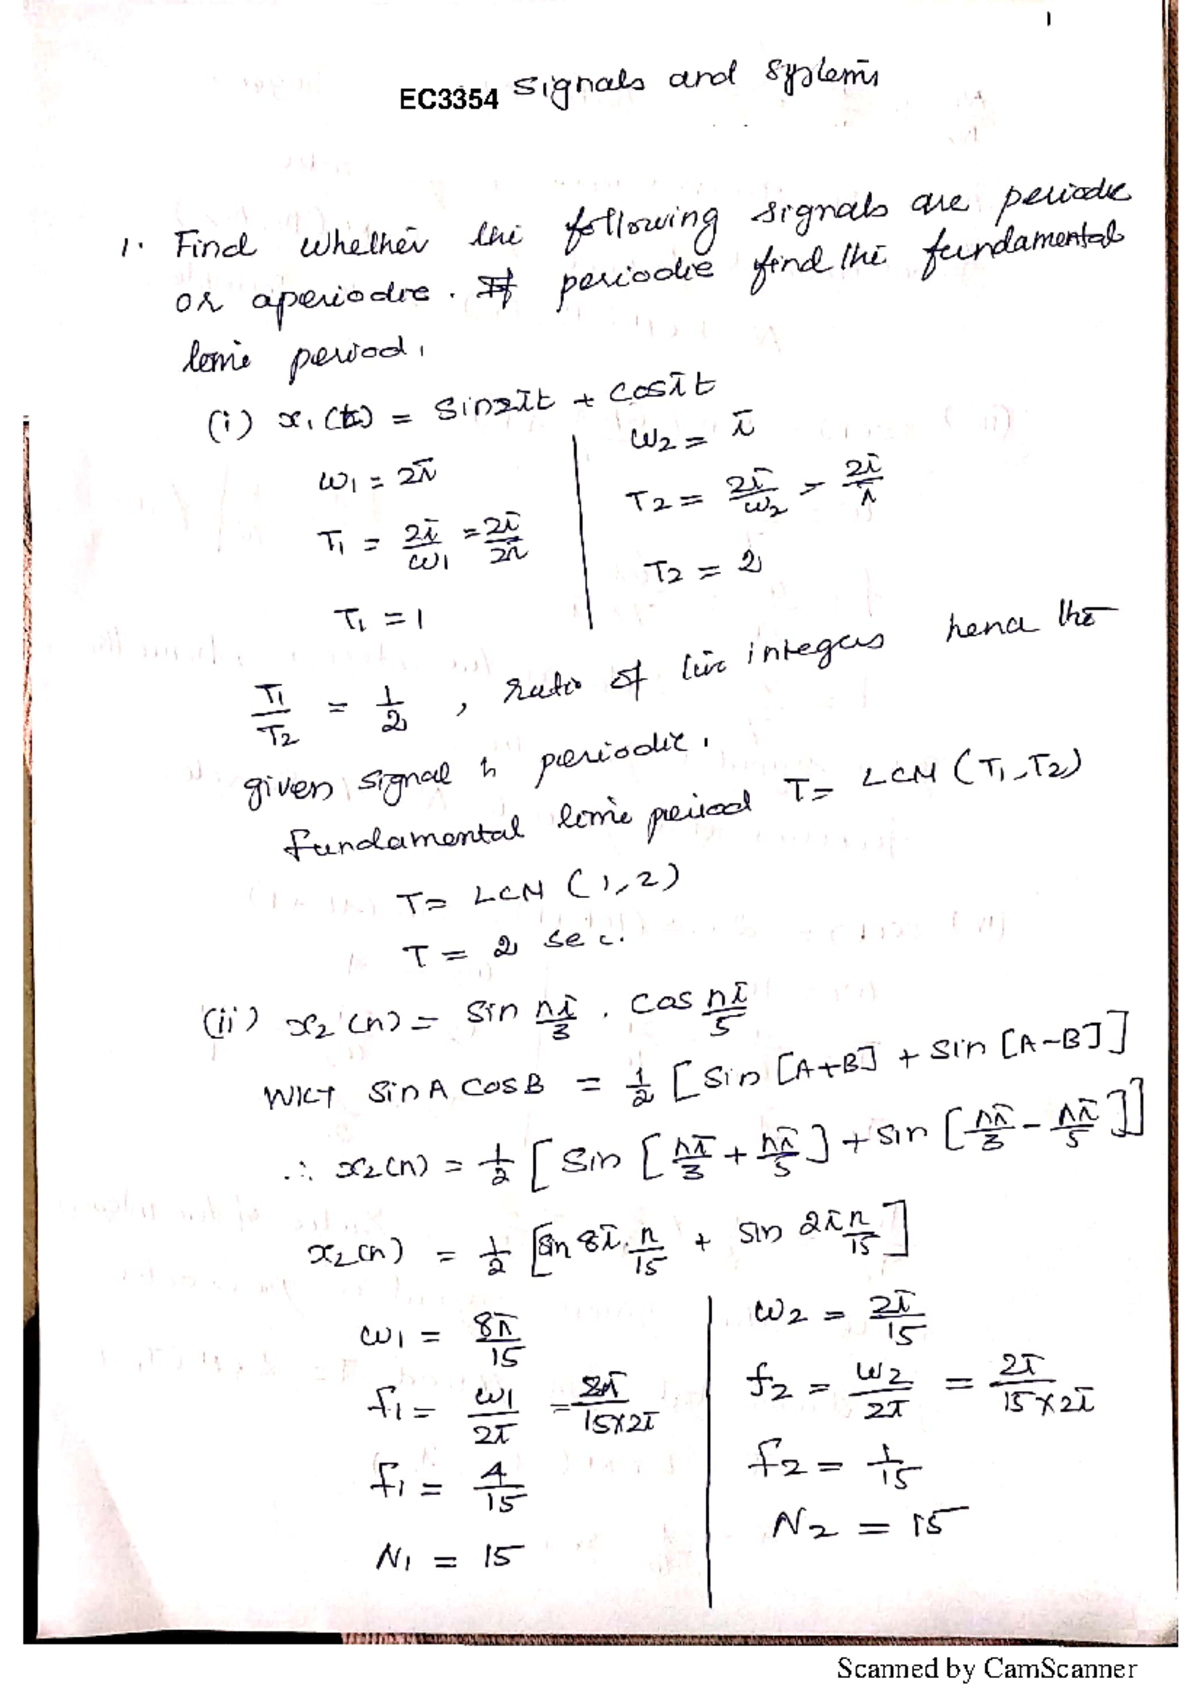 1
EC3354 signals and systems
1. Find whether the following signals are periodic
or aperiodic. If periodic find the fundamental
time period.
(i) x₁(t) = sin2πt + cosπt
ω₁ = 2π
T₁ = 2π/ω₁ = 2π/2π
T₁ = 1
ω₂ = π
T₂ = 2π/ω₂ = 2π/π
T₂ = 2
T₁/T₂ = 1/2, ratio of two integers hence the
given signal is periodic.
fundamental time period T = LCM (T₁, T₂)
T = LCM (1, 2)
T = 2 sec.
(ii) x₂(n) = sin nπ/3 . cos nπ/5
WKT sin A cos B = 1/2 [sin [A+B] + sin [A-B]]
∴ x₂(n) = 1/2 [sin [nπ/3 + nπ/5] + sin [nπ/3 - nπ/5]]
x₂(n) = 1/2 [sin 8π. n/15 + sin 2π n/15]
ω₁ = 8π/15
f₁ = ω₁/2π = 8π/15×2π
f₁ = 4/15
N₁ = 15
ω₂ = 2π/15
f₂ = ω₂/2π = 2π/15×2π
f₂ = 1/15
N₂ = 15
Scanned by CamScanner